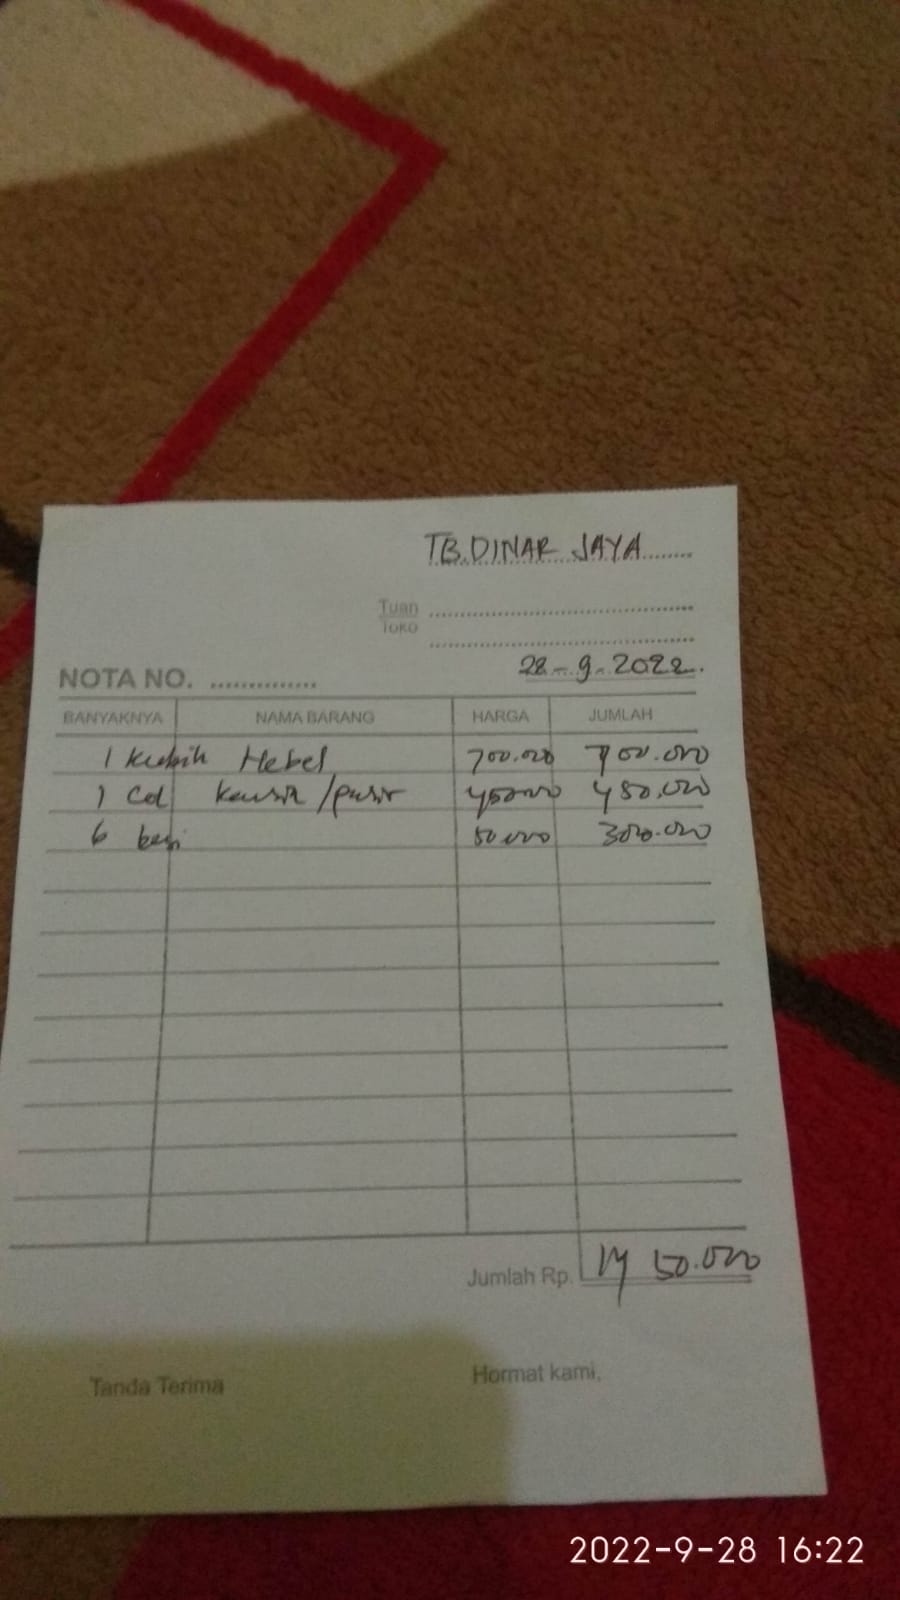 TB.DINAR JAYA
Tuan
TOKO
NOTA NO. 28-9-2022.
BANYAKNYA NAMA BARANG HARGA JUMLAH
1 Kubik Hebel 700.000 700.000
1 Col /pasir 450000 450.000
6 besi 50.000 300.000
Jumlah Rp. 1450.000
Tanda Terima Hormat kami,
2022-9-28 16:22